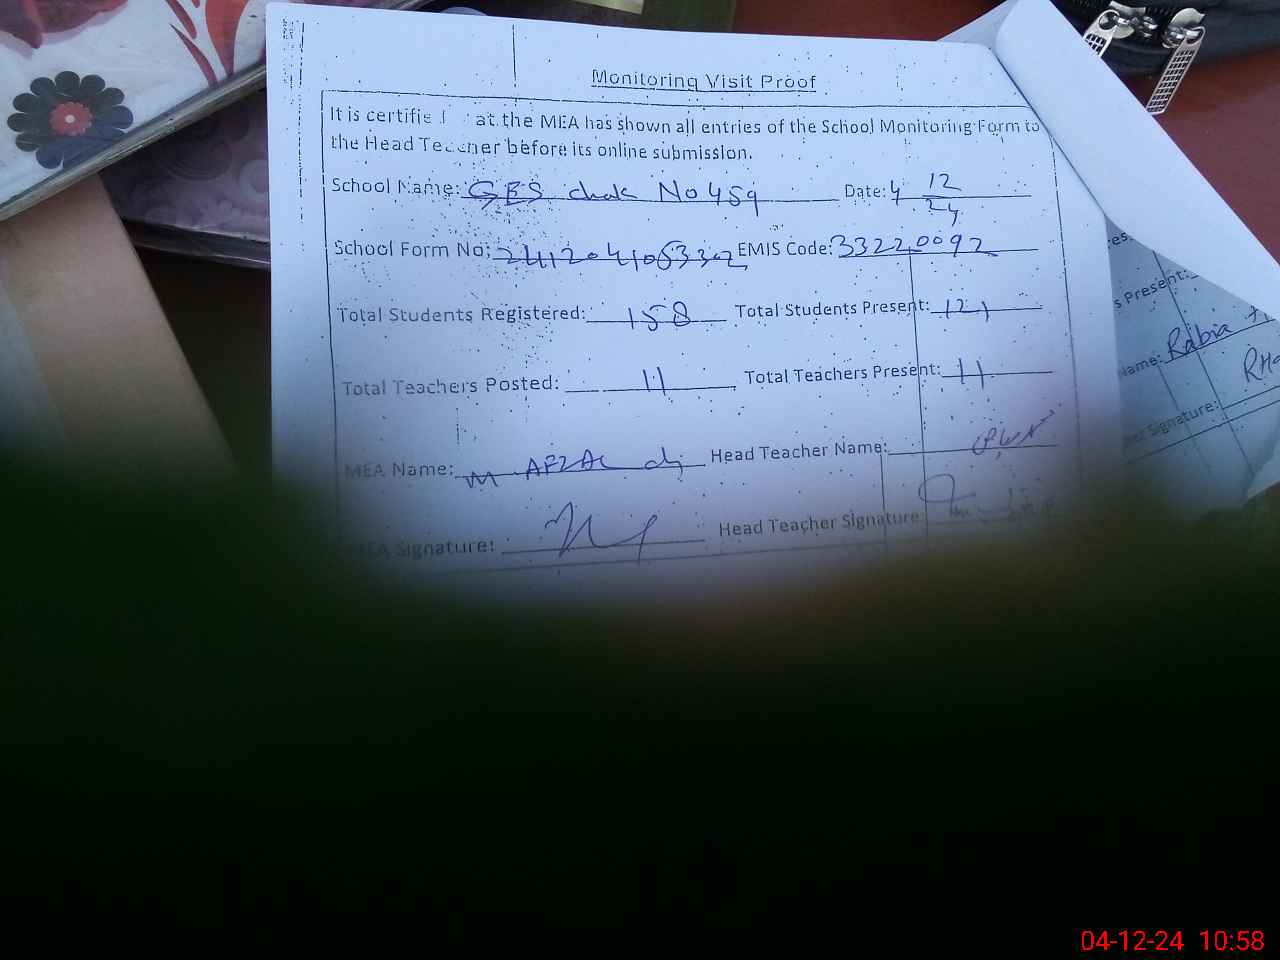 Monitoring Visit Proof
It is certifie at the MEA has shown all entries of the School Monitoring Form to
the Head Teacher before its online submission.
School Name: GES chak No 459 Date: 4 12 24
School Form No: 2412041053302 EMIS Code: 33220092
Total Students Registered: 158 Total Students Present: 121
Total Teachers Posted: 11 Total Teachers Present: 11
MEA Name: M AFZAL Head Teacher Name:
MEA Signature: Head Teacher Signature:
s Present:
Name: Rabia
Signature:
04-12-24 10:58